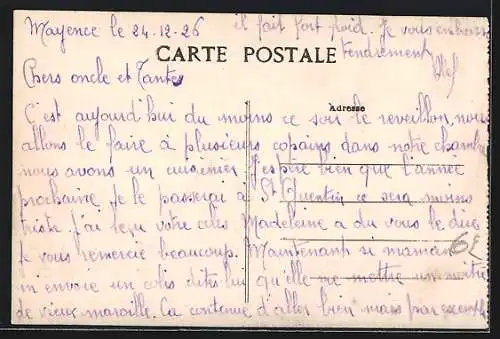 Mayence le 24-12-26
il fait fort froid. Je vous embrasse
tendrement
CARTE POSTALE
Chers oncle et Tantes
Adresse
C'est aujourd'hui du moins ce soir le reveillon, nous
allons le faire à plusieurs copains dans notre chambre
nous avons un cuisinier J'espère bien que l'année
prochaine je le passerai à St Quentin ce sera moins
triste. J'ai reçu votre colis Madeleine a du vous le dire
Je vous remercie beaucoup. Maintenant si maman
m envoie un colis dites lui qu'elle me mettre un morceau
de vieux maroille. Ca continue d'aller bien mais par exemple
6E